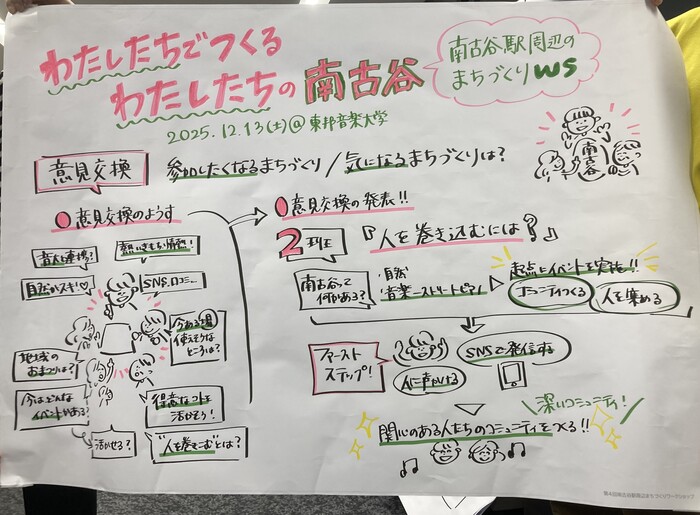 わたしたちでつくる
わたしたちの南古谷
南古谷駅周辺の
まちづくりWS
2025.12.13(土)@東邦音楽大学
南古谷
意見交換
参加したくなるまちづくり/気になるまちづくりは?
意見交換のようす
音大と連携?
熱いきもち 情熱!
自然がスキ♡
SNS、口コミ…
今ある場
使えそうな
ところは?
地域の
おまつりは?
今はどんな
イベントがある?
得意なコトを
活かそう!
活かせる?
"人を巻きこむ"とは?
意見交換の発表!!
2班
『人を巻き込むには?』
南古谷って
何がある?
自然
音楽-ストリートピアノ
起点にイベントを実施!!
コミュニティつくる
人を集める
ファースト
ステップ!
人に声かける
SNSで発信する
深いコミュニティ!
関心のある人たちのコミュニティをつくる!!
第4回南古谷駅周辺まちづくりワークショップ